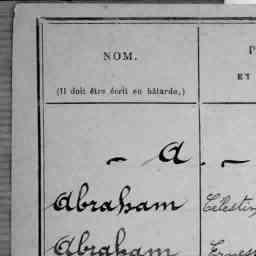 NOM.
P
ET
(Il doit être écrit en bâtarde.)
— A. —
Abraham Célestin
Abraham Ernes